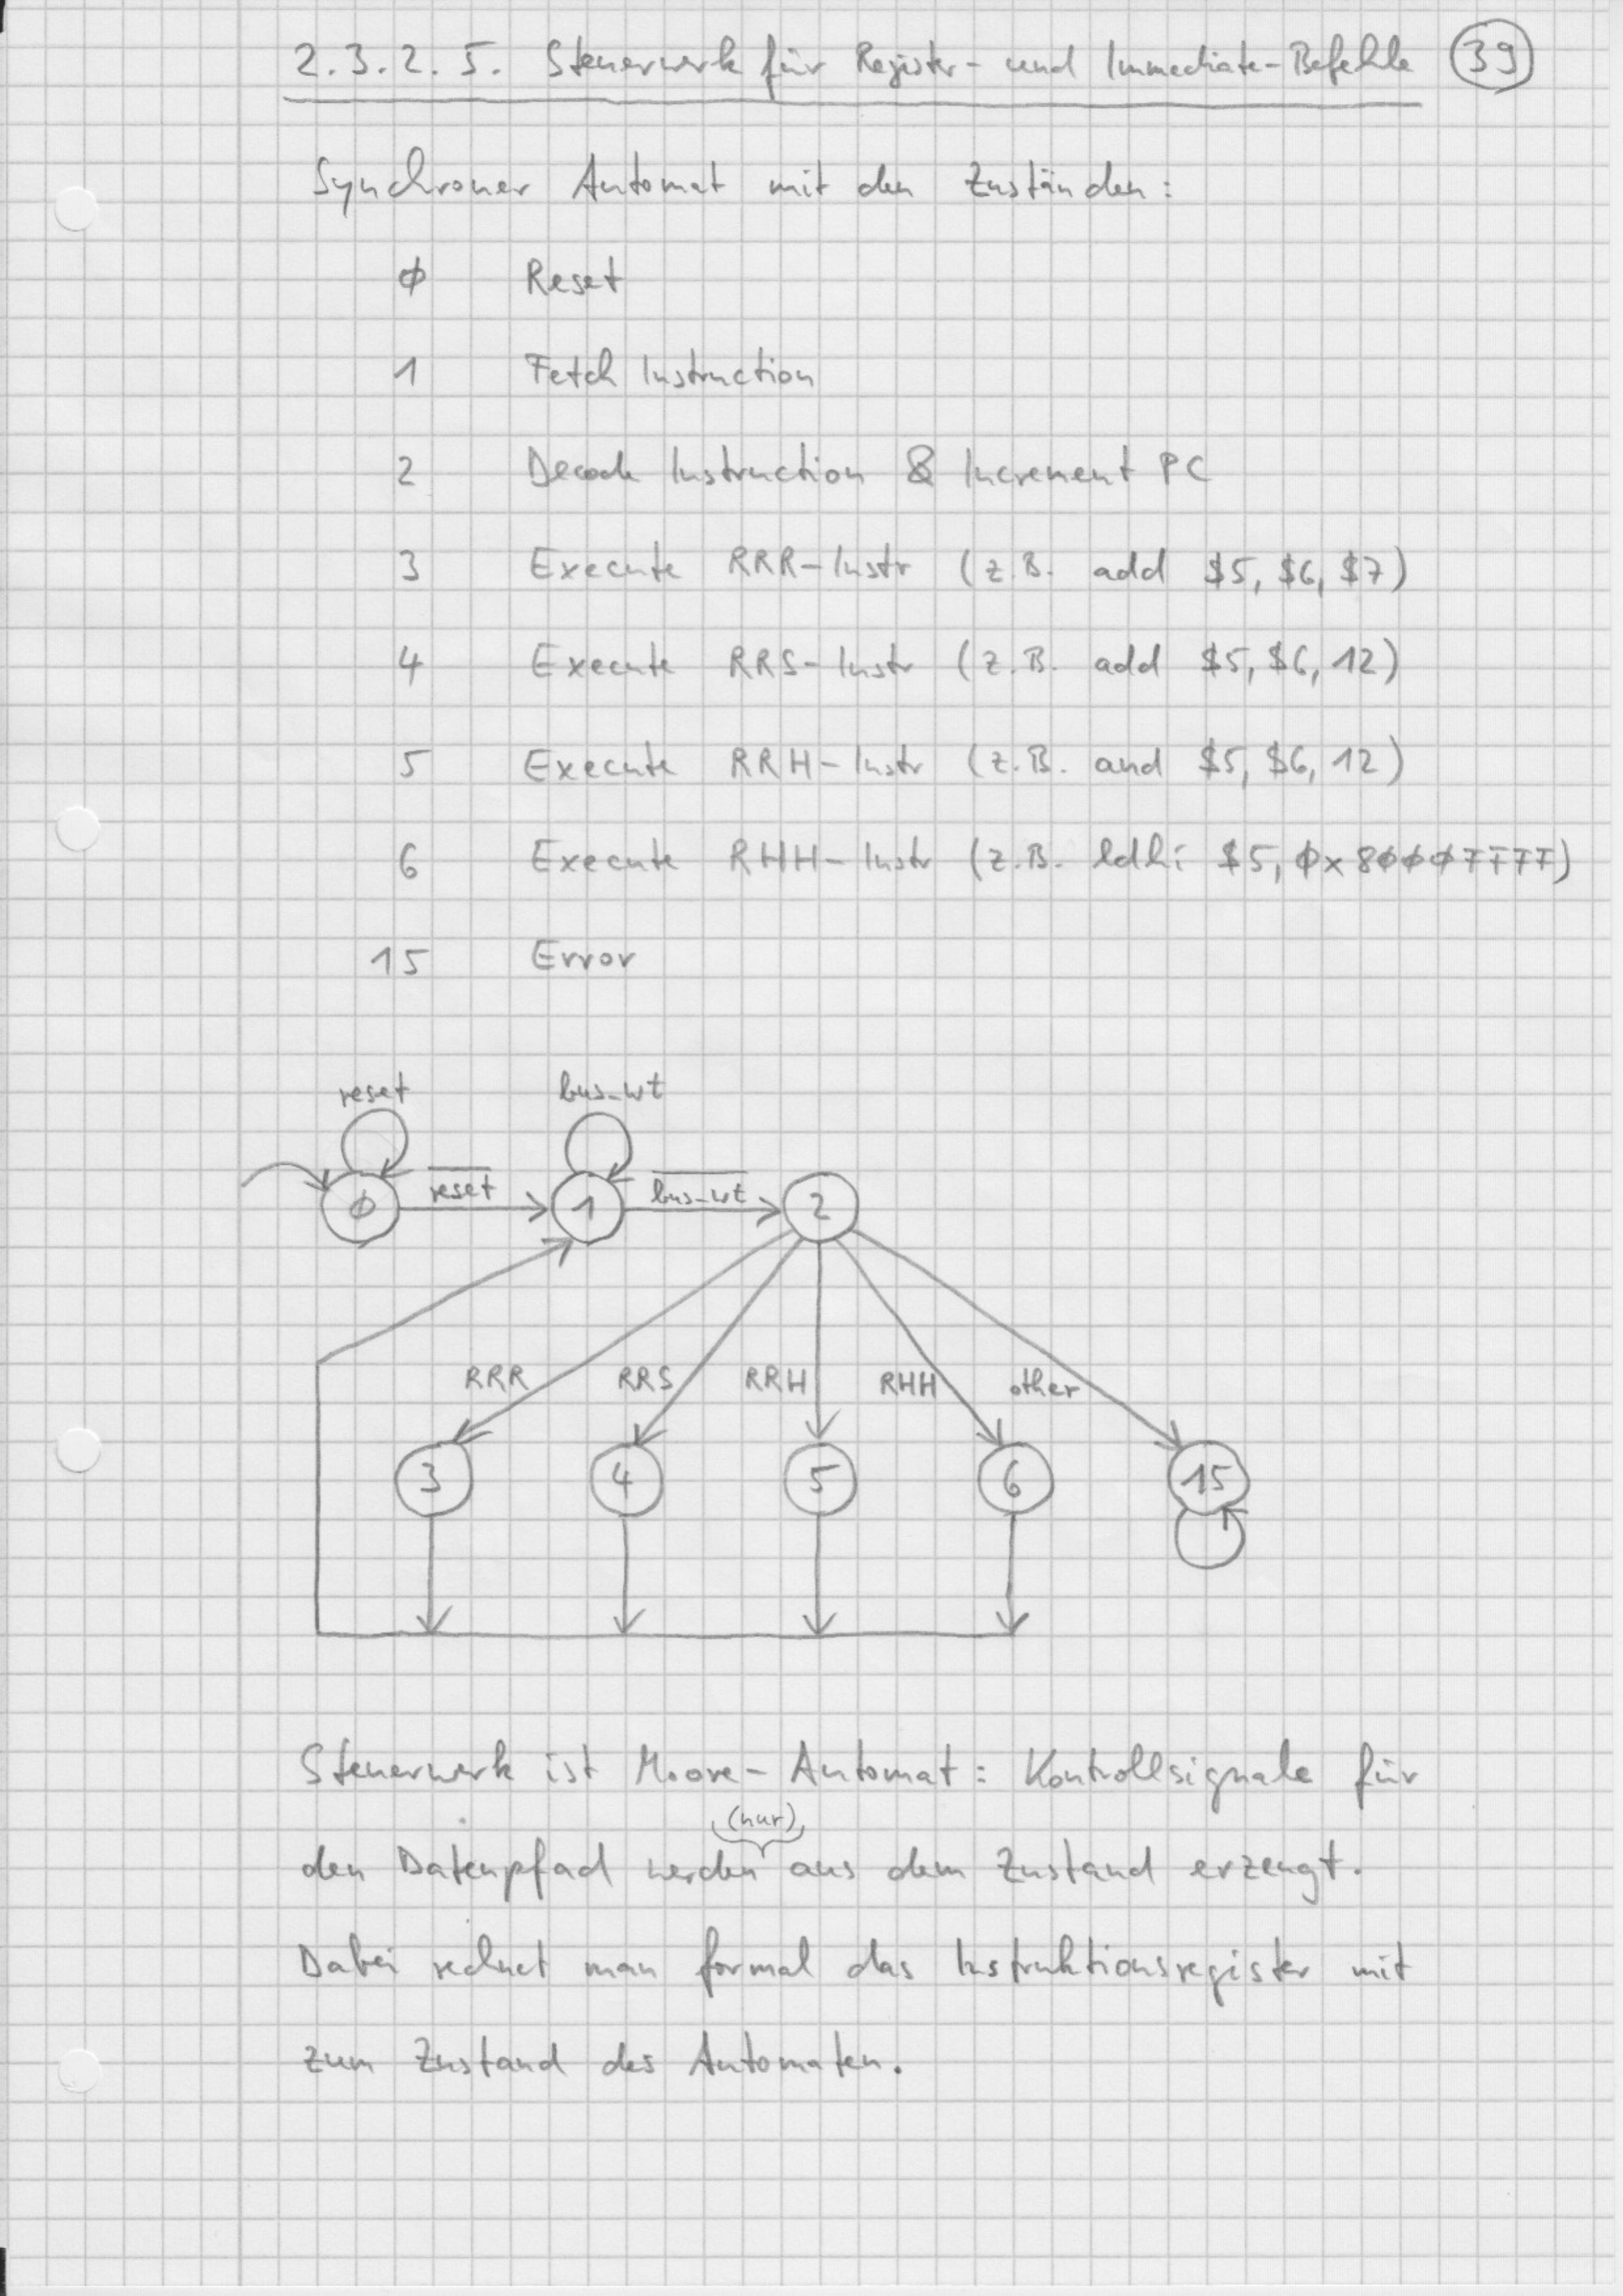 2.3.2.5. Steuerwerk für Register- und Immediate-Befehle 39
Synchroner Automat mit den Zuständen:
0 Reset
1 Fetch Instruction
2 Decode Instruction & Increment PC
3 Execute RRR-Instr (z.B. add $5, $6, $7)
4 Execute RRS-Instr (z.B. add $5, $6, 12)
5 Execute RRH-Instr (z.B. and $5, $6, 12)
6 Execute RHH-Instr (z.B. ldhi $5, 0x8000FFFF)
15 Error
reset bus_wt
0 reset 1 bus_wt 2
RRR RRS RRH RHH other
3 4 5 6 15
Steuerwerk ist Moore-Automat: Kontrollsignale für
(nur)
den Datenpfad werden aus dem Zustand erzeugt.
Dabei rechnet man formal das Instruktionsregister mit
zum Zustand des Automaten.